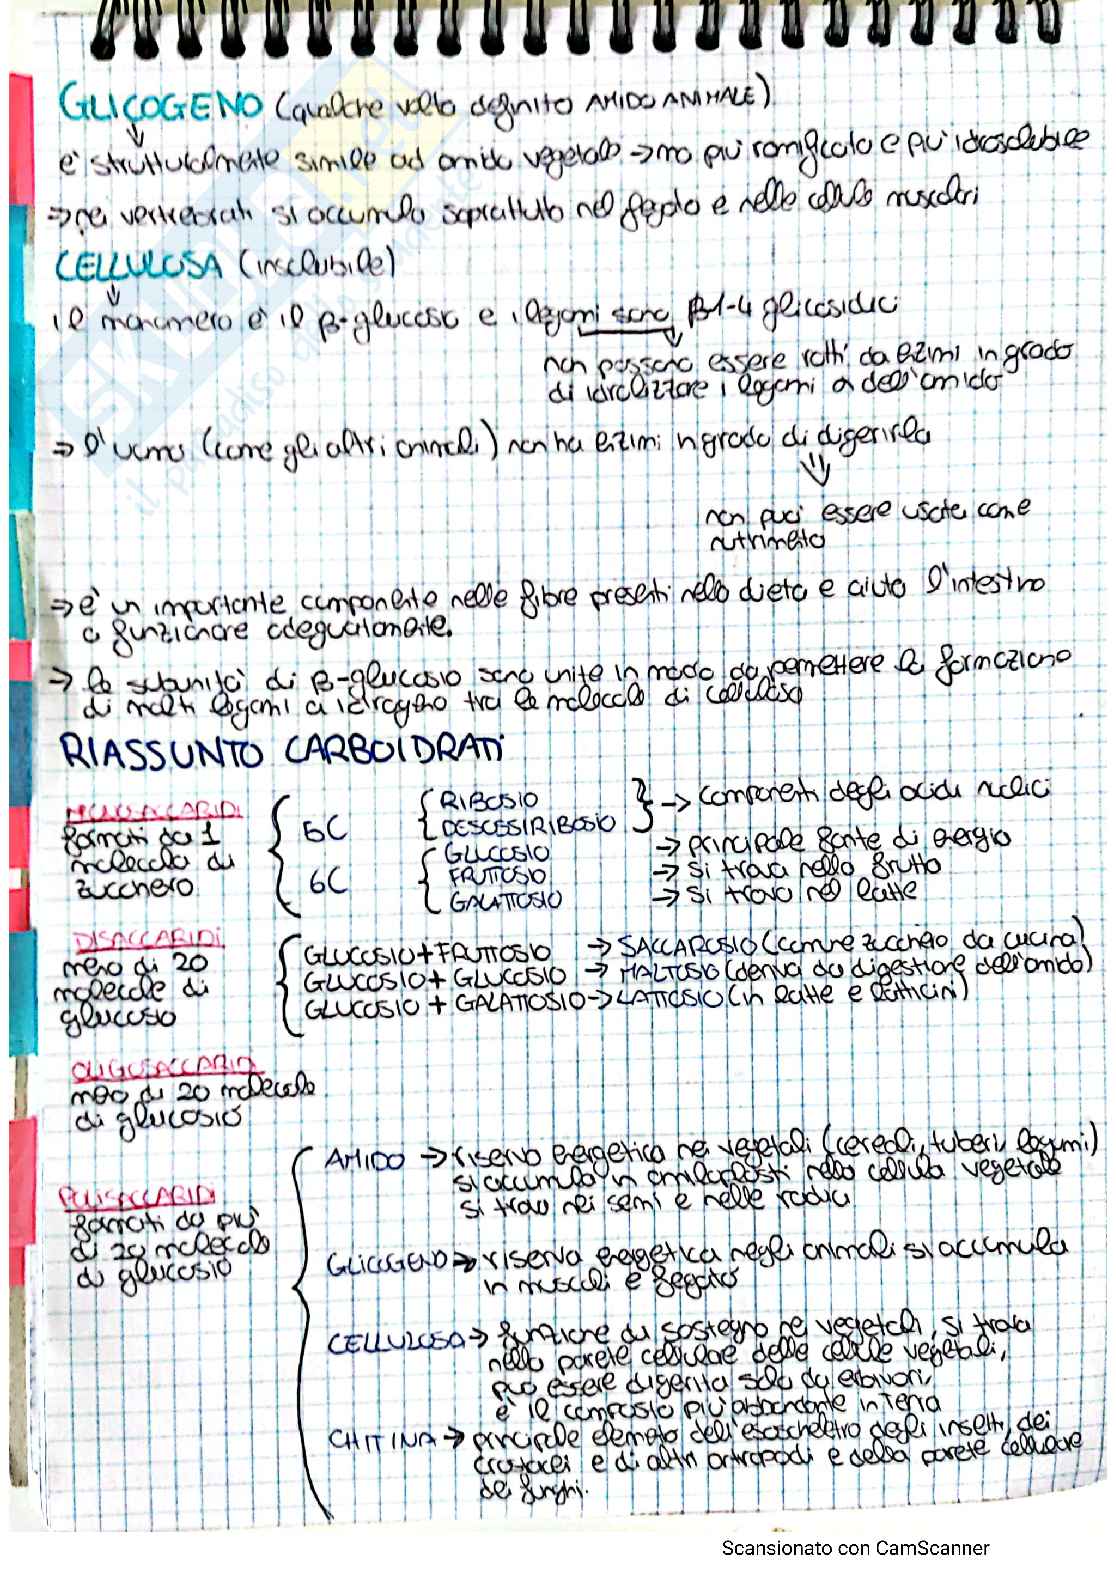 GLICOGENO (qualche volta definito AMIDO ANIMALE)
è strutturalmente simile ad amido vegetale → ma più ramificato e più idrosolubile
⇒ nei vertebrati si accumula soprattutto nel fegato e nelle cellule muscolari
CELLULOSA (insolubile)
il monomero è il β-glucosio e i legami sono β1-4 glicosidici
non possono essere rotti da enzimi in grado
di idrolizzare i legami α dell'amido
⇒ l'uomo (come gli altri animali) non ha enzimi in grado di digerirla
non può essere usata come
nutrimento
⇒ è un importante componente nelle fibre presenti nella dieta e aiuta l'intestino
a funzionare adeguatamente.
→ le subunità di β-glucosio sono unite in modo da permettere la formazione
di molti legami a idrogeno tra le molecole di cellulosa
RIASSUNTO CARBOIDRATI
MONOSACCARIDI
formati da 1
molecola di
zucchero
5C
RIBOSIO
DESOSSIRIBOSIO
→ componenti degli acidi nucleici
6C
GLUCOSIO → principale fonte di energia
FRUTTOSIO → si trova nella frutta
GALATTOSIO → si trova nel latte
DISACCARIDI
meno di 20
molecole di
glucosio
GLUCOSIO+FRUTTOSIO → SACCAROSIO (comune zucchero da cucina)
GLUCOSIO+GLUCOSIO → MALTOSIO (deriva da digestione dell'amido)
GLUCOSIO + GALATTOSIO → LATTOSIO (in latte e latticini)
OLIGOSACCARIDI
meno di 20 molecole
di glucosio
POLISACCARIDI
formati da più
di 20 molecole
di glucosio
AMIDO → riserva energetica nei vegetali (cereali, tuberi, legumi)
si accumula in amiloplasti nella cellula vegetale
si trova nei semi e nelle radici
GLICOGENO → riserva energetica negli animali si accumula
in muscoli e fegato
CELLULOSA → funzione di sostegno nei vegetali, si trova
nella parete cellulare delle cellule vegetali,
può essere digerita solo da erbivori,
è il composto più abbondante in Terra
CHITINA → principale elemento dell'esoscheletro degli insetti, dei
crostacei e di altri artropodi e della parete cellulare
dei funghi.
SKUOLA.net
il paradiso dello studente
Scansionato con CamScanner